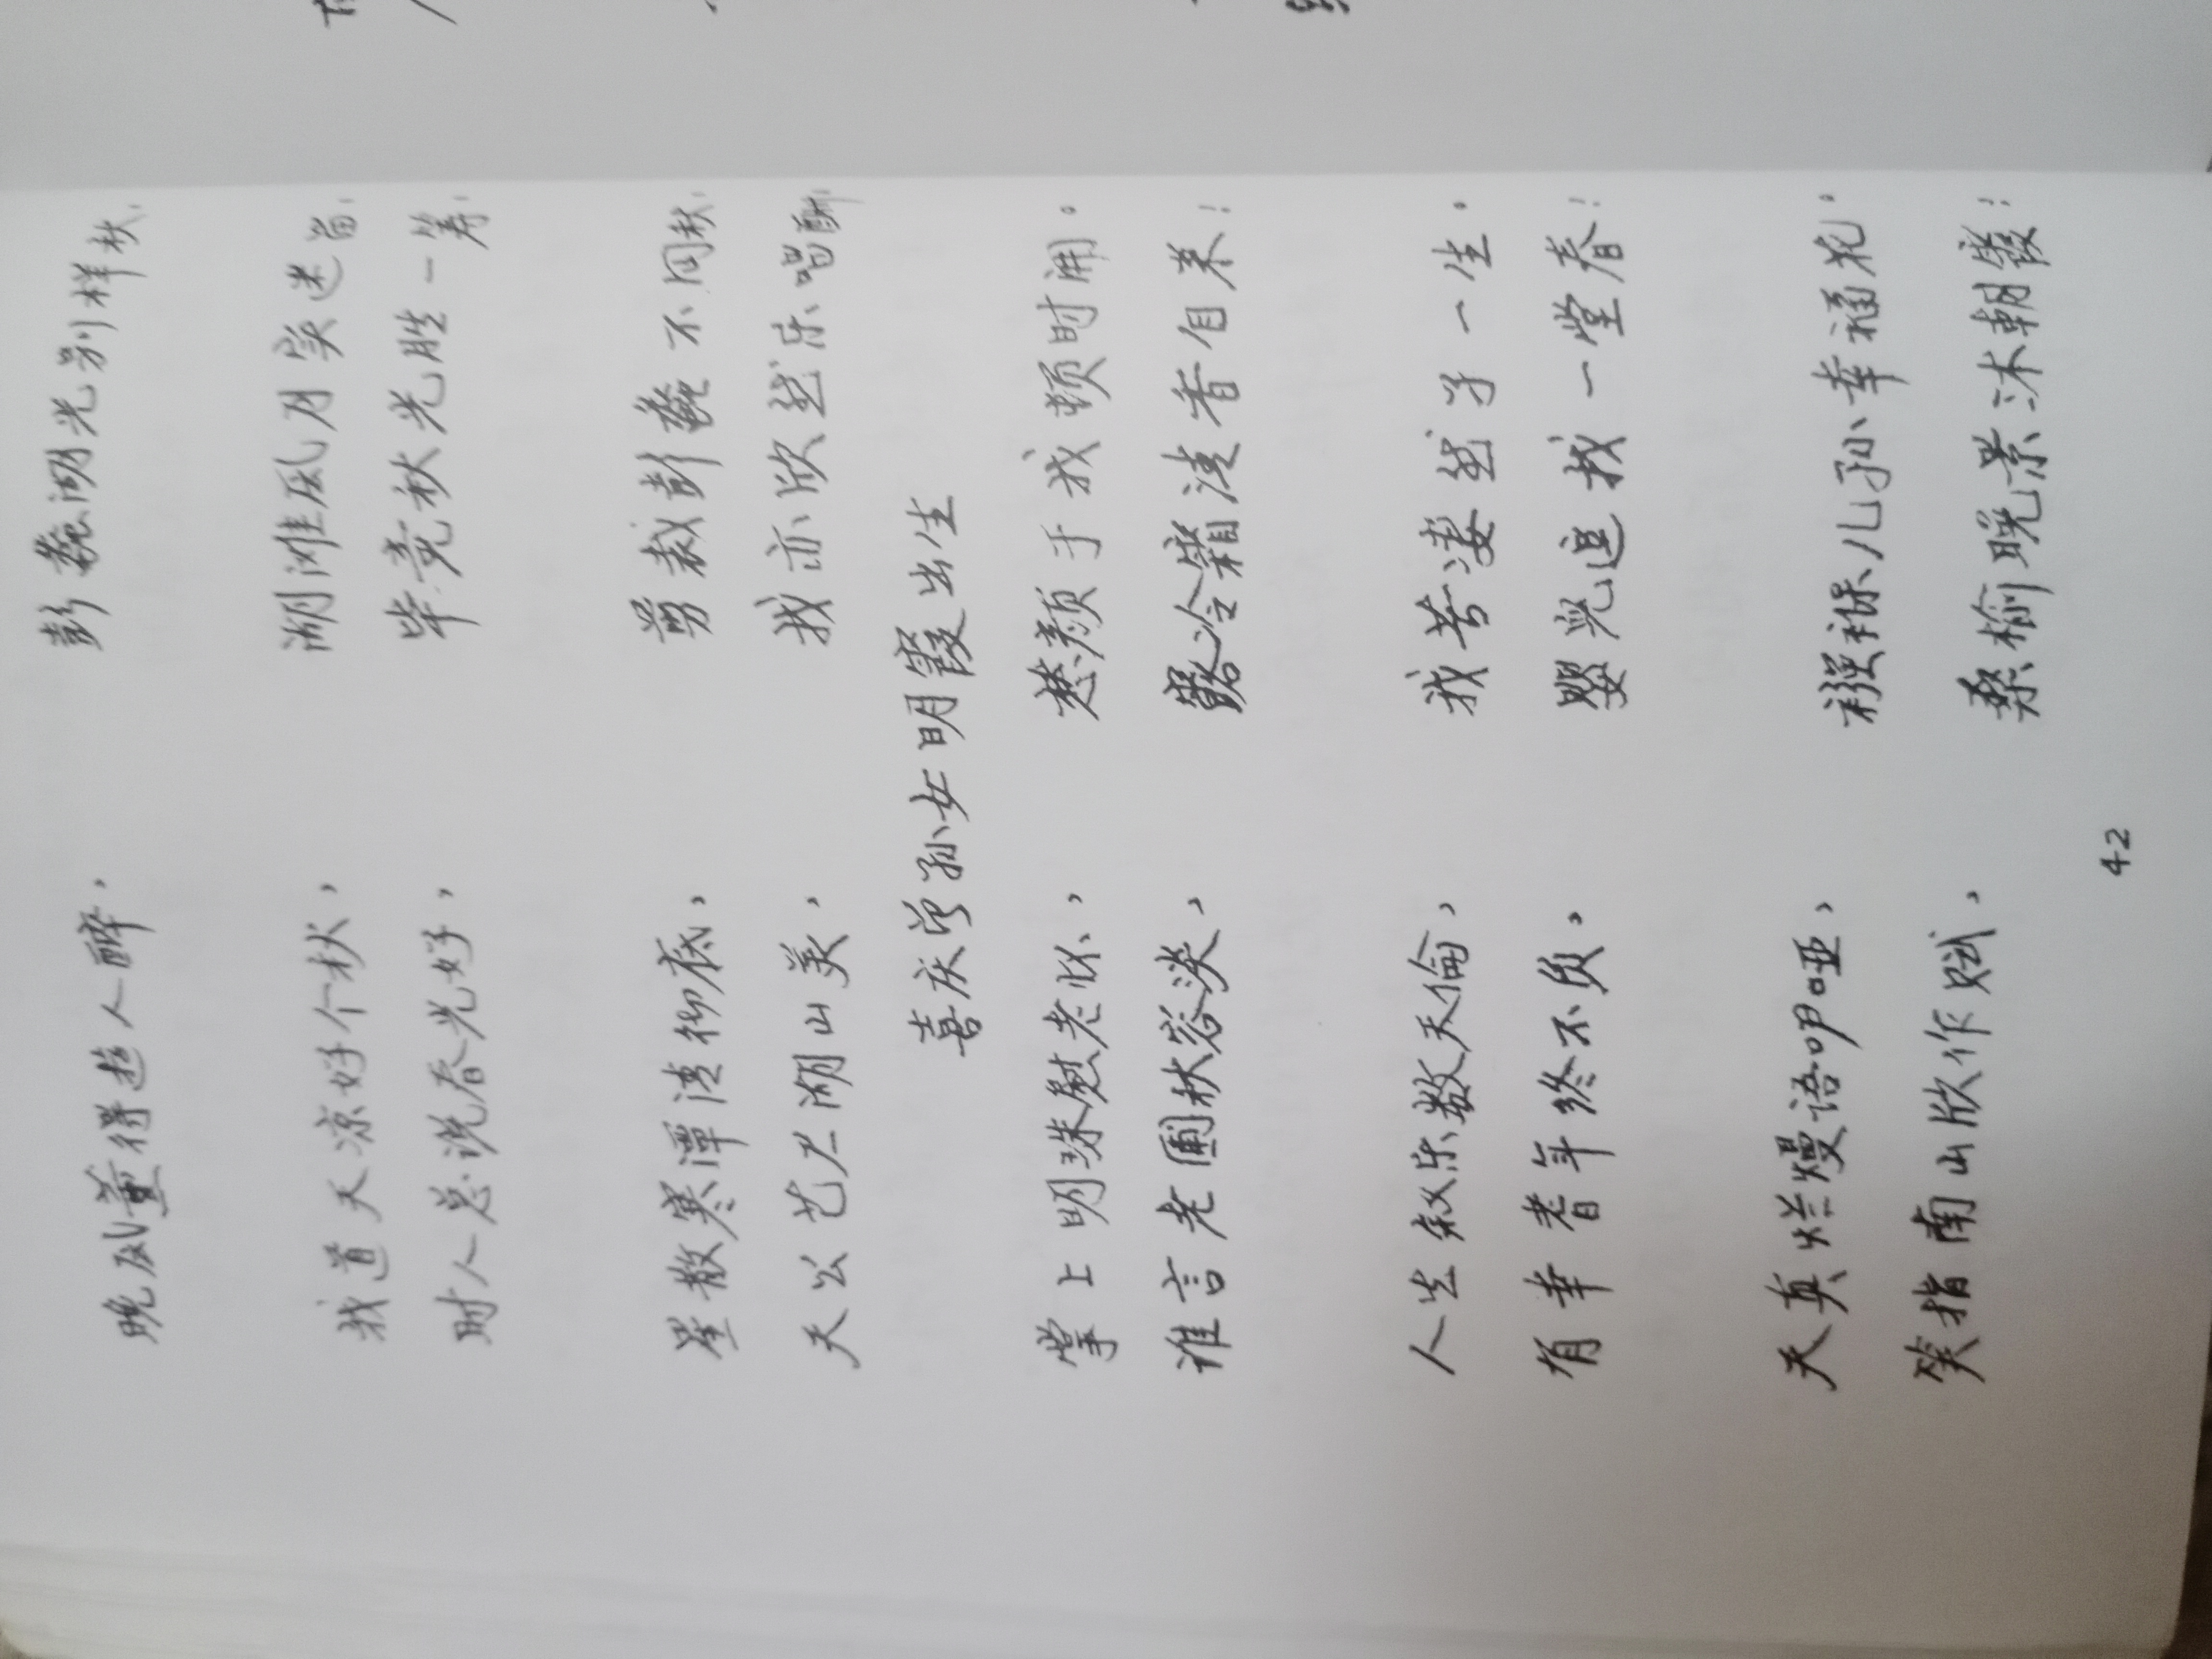 晚风薰得游人醉，彭蠡湖光别样秋。
我道天凉好个秋，湖滩风月实迷留。
时人总说春光好，毕竟秋光胜一筹。
星散寒潭清彻底，剪裁彭蠡不同秋。
天公艺尺湖山美，我亦欣然乐唱酬。
喜庆曾孙女明霞出生
掌上明珠慰老怀，慈颜于我顿时开。
谁言老圃秋容淡，露冷霜清香自来！
人生叙乐数天倫，我苦凄然子一生。
有幸耆年终不负，婴儿逗我一堂春！
天真烂熳语咿哑，襁褓儿孙幸福花。
笑指南山欣作赋，桑榆晚景沐朝霞！
42